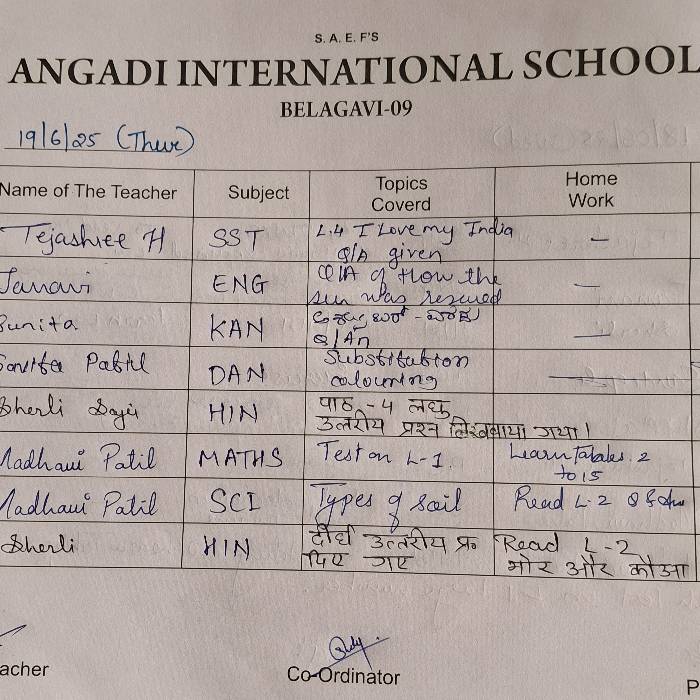 S. A. E. F'S
ANGADI INTERNATIONAL SCHOOL
BELAGAVI-09
19/6/25 (Thur)
Name of The Teacher Subject Topics Coverd Home Work
Tejashree H SST L.4 I Love my India –
Q/A given
Janavi ENG Q/A of How the –
sun was rescued
Sunita KAN –
Q/An
Savita Patil DAN Substitution –
colouring
Sherli Saji HIN पाठ -4 लघु
उत्तरीय प्रश्न लिखवाया गया।
Madhavi Patil MATHS Test on L-1 Learn Tabales. 2
to 15
Madhavi Patil SCI Types of soil Read L-2
Sherli HIN दीर्घ उत्तरीय प्र॰ Read L-2
दिए गए मोर और कौआ
acher
Co-Ordinator
P